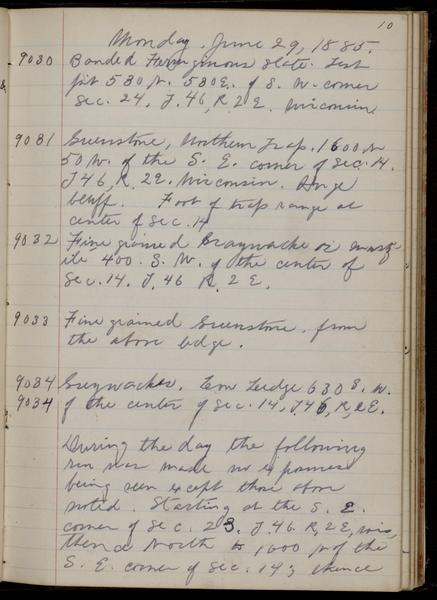 10
Monday. June 29, 1885.
9030 Banded Ferruginous slate. Test
pit 530 N. 530 E. of S. W. corner
Sec. 24, T. 46, R 2 E. Wisconsin
9031 Greenstone, Northern Trap. 1600 N
50 W. of the S. E. corner of Sec. 14.
T 46, R. 2E. Wisconsin. Large
bluff. Foot of trap range at
center of Sec. 14
9032 Fine grained Graywacke or quartz
ite 400. S. W. of the center of
Sec. 14. T. 46 R. 2 E.
9033 Fine grained Greenstone. from
the above ledge.
9034 Greywacke. Low Ledge 630 S. W.
9034 of the center of Sec. 14, T46, R, 2E.
During the day the following
run was made no exposures
being seen except those above
noted. Starting at the S. E.
corner of Sec. 23. T. 46. R, 2 E, Wis,
thence North to 1600 N of the
S. E. corner of Sec. 14; thence